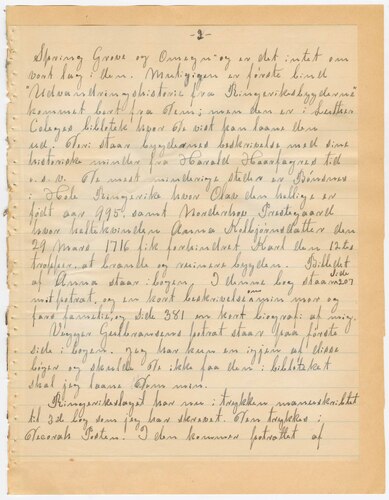 -2-
Spring Grove og Omegn" og er det intet om
vort lag i den. Muligigen er første bind
"Udvandringshistorie fra Ringerikesbygderne"
kommet bort fra Dem; men den er i Luther
Coleges bibliotek hvor De vist kan laane den
ud. Deri staar bygdernes beskrivelse med sine
historiske minder fra Harald Haarfagres tid
o.s.v. De mest minderige steder er Bønsnes
i Hole Ringerike hvor Olav den hellige er
født aar 995. samt Norderhov Prestegaard
hvor heltekvinden Anna Kolbjørnsdatter den
29 Mars 1716 fik forhindret Karl den 12tes
tropper, at brande og ruinere bygden. Billedet
af Anna staar i bogen. I denne bog staar Side 207
mit potrat, og en kort beskrivelse min mor og
fars familie, og side 381 en kort biografi af mig.
Vegger Gulbransens potrat staar paa første
side i bogen. Jeg har kun en igjen af disse
bøger og skulde De ikke faa den i biblioteket
skal jeg laane Dem min.
Ringerikeslaget har nu i trykken manuskribtet
til 3d bog som jeg har skrevet. Den trykkes i
Decorah Posten. I den kommer potrattet af